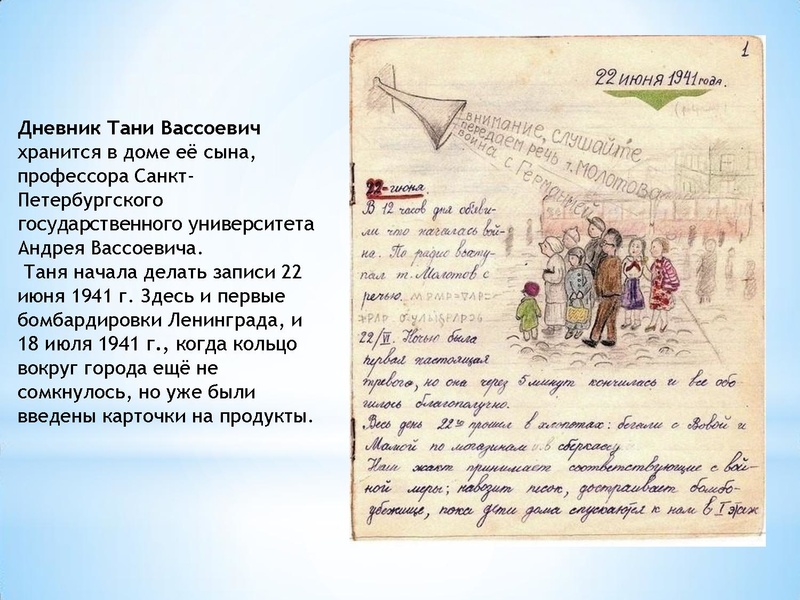 Дневник Тани Вассоевич
хранится в доме её сына,
профессора Санкт-
Петербургского
государственного университета
Андрея Вассоевича.
Таня начала делать записи 22
июня 1941 г. Здесь и первые
бомбардировки Ленинграда, и
18 июля 1941 г., когда кольцо
вокруг города ещё не
сомкнулось, но уже были
введены карточки на продукты.
1
22 июня 1941 года.
внимание, слушайте
передаем речь т. Молотова
война с Германией
22-июня.
В 12 часов дня объяви-
ли что началась вой-
на. По радио высту-
пал т. Молотов с
речью.
22/VI. Ночью была
первая настоящая
тревога, но она через 5 минут кончилась и все обо
шлось благополучно.
Весь день 22го прошел в хлопотах: бегали с Вовой и
Мамой по магазинам и в сберкассу.
Наш жакт принимает соответствующие с вой-
ной меры; навозит песок, достраивает бомбо-
убежище, пока дети дома спускаются к нам в I этаж